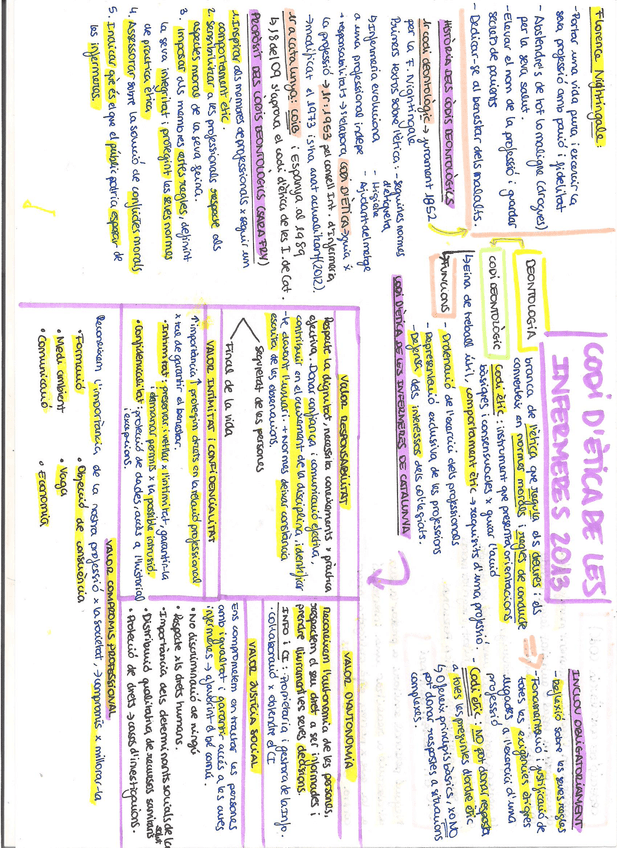 CODI D'ÈTICA DE LES
INFERMERES 2013
DEONTOLOGIA
branca de l'ètica que regula els deures i els
converteix en normes morals i regles de conducta
CODI DEONTOLÒGIC
Codi ètic: instrument que presenta orientacions
bàsiques i consensuades x guiar l'acció
↳ Eina de treball útil, comportament ètic → requisits d'una professió
↳ FUNCIONS
- Ordenació de l'exercici dels professionals
- Representació exclusiva de les professions
- Defensa dels interessos dels col·legiats.
INCLOU OBLIGATÒRIAMENT
- Reflexió sobre les seves regles
- Fonamentació i justificació de
totes les exigències ètiques
lligades a l'exercici d'una
professió
- Codi ètic: NO pot donar resposta
a totes les preguntes d'ordre ètic
↳ Ofereix principis bàsics, xo NO
pot donar respostes a situacions
complexes.
Florence Nightingale:
- Portar una vida pura i exercir la
seva professió amb passió i fidelitat
- Abstendre's de tot lo maligne (drogues)
per la seva salut.
- Elevar el nom de la professió i guardar
secrets de pacients
- Dedicar-se al benestar dels malalts.
HISTÒRIA DELS CODIS DEONTOLÒGICS
1r codi deontològic → jurament 1852
per la F. Nightingale
Primers textos sobre l'ètica: - seguien normes
d'etiqueta
- Higiene
- Ajudant del metge
↳ Infermeria evoluciona
a una professional indepe
+ responsabilitat → s'elabora CODI D'ÈTICA → guia x
la professió → 1r: 1953 pel Consell Int. d'Infermeria
→ modificat el 1973 i s'ha anat actualitzant (2012).
1r a Catalunya: COIB i Espanya al 1989
↳ 18 del 09 s'aprova el codi d'ètica de les I. de Cat.
PROPÒSIT DELS CODIS DEONTOLÒGICS (SARA FRY)
1. Inspirar als membres de professionals x seguir un
comportament ètic.
2. Sensibilitzar a les professionals respecte als
aspectes morals de la seva feina.
3. Imposar als membres certes regles, definint
la seva integritat i protegint les seves normes
de pràctica ètica.
4. Assessorar sobre la solució de conflictes morals
5. Indicar què és el que el públic podria esperar de
les infermeres.
CODI D'ÈTICA DE LES INFERMERES DE CATALUNYA
VALOR RESPONSABILITAT
Respecte la dignitat, necessita coneixements x pràctica
efectiva, Donar confiança i comunicació efectiva,
contribuir en el creixement de la disciplina, identificar
-te davant l'usuari. + Normes: deixar constància
escrita de les observacions.
Seguretat de les persones
Final de la vida
VALOR INTIMITAT I CONFIDENCIALITAT
↑ importància i protegim drets en la relació professional
x tal de garantir el benestar.
• Intimitat: preservar, vetllar x l'intimitat, garantir-la
i demanar permís x la possible intrusió.
• Confidencialitat: protecció de dades, accés a l'historial
i excepcions.
VALOR AUTONOMIA
Reconeixem l'autonomia de les persones,
respectem el seu dret a ser informades i
prendre lliurament les seves decisions
INFO i CI: Propietària i gestora de la info.
i col·laboració x obtindre el CI
VALOR JUSTÍCIA SOCIAL
Ens comprometem en tractar les persones
amb igualtat i garantir accés a les cures
infermeres → afavorint el bé comú.
• No discriminació de ningú
• Respecte als drets humans.
• Importància dels determinants socials de la
salut
• Distribució qualitativa de recursos sanitaris
• Protecció de drets → casos d'investigacions.
VALOR COMPROMÍS PROFESSIONAL
Reconeixem l'importància de la nostra professió x la societat, → compromís x millorar-la
• Formació
• Objecció de consciència
• Medi ambient
• Vaga
• Comunicació
• Economia